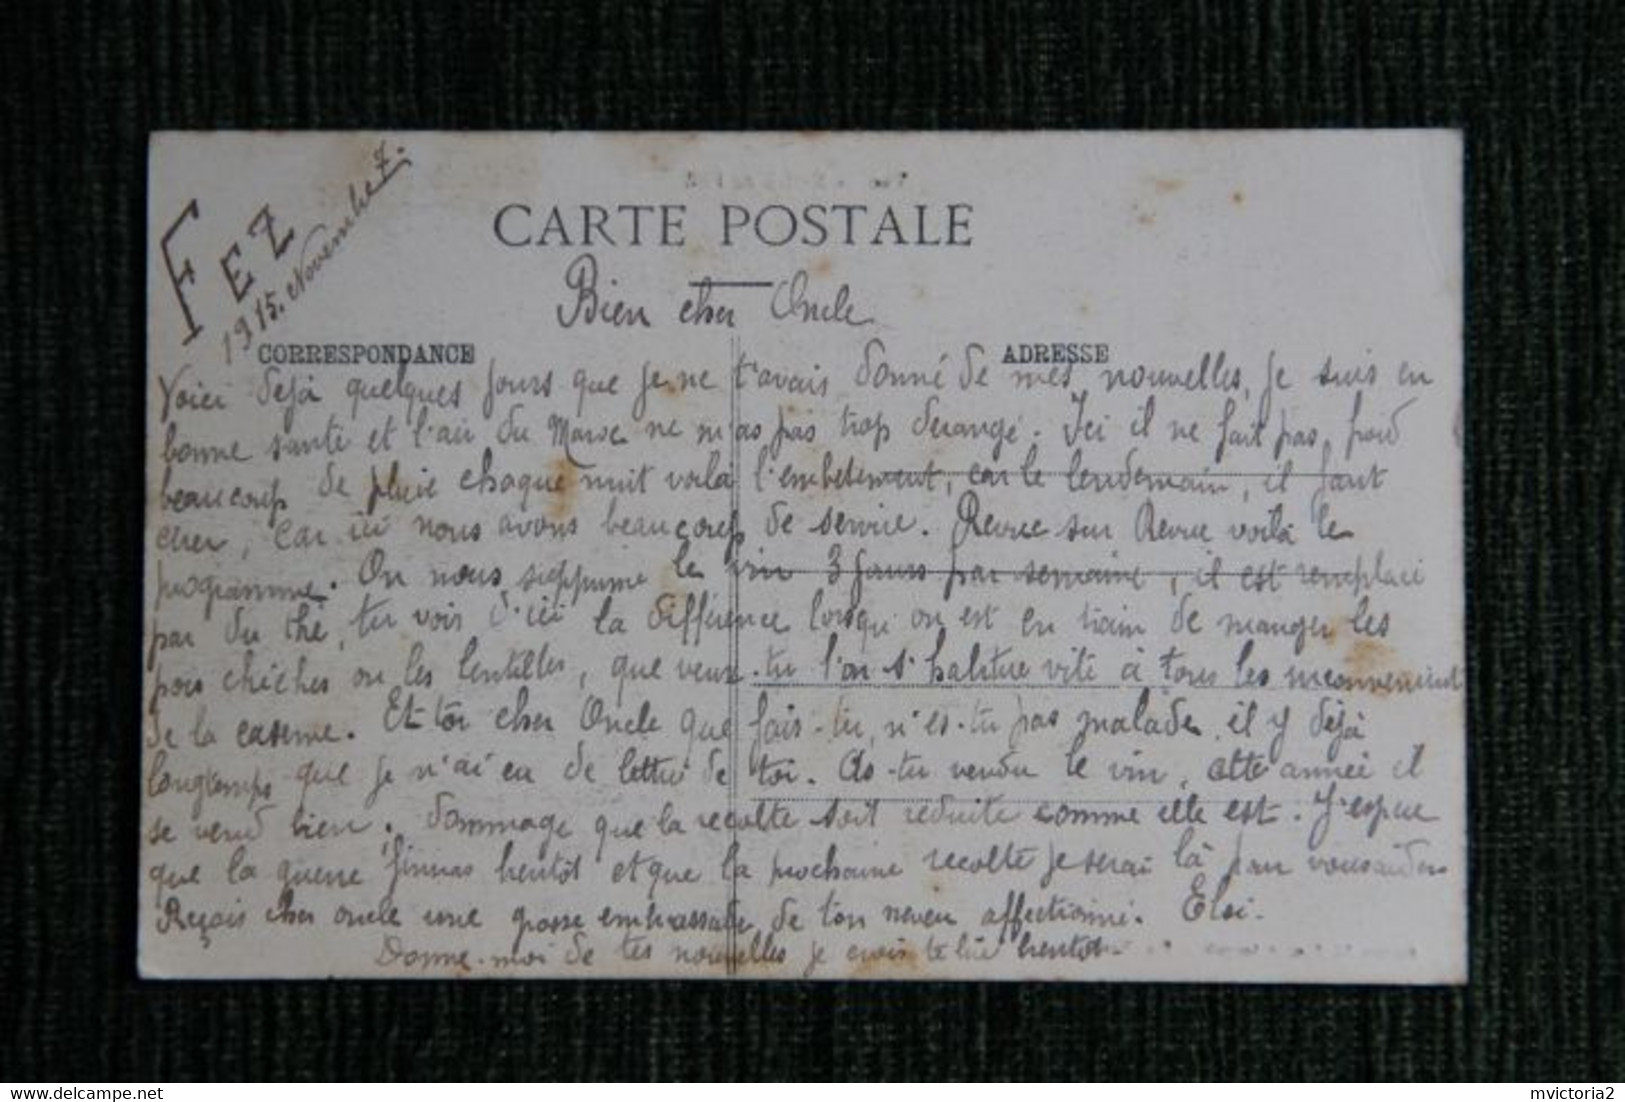 FEZ
1915. Novembre 7.
CARTE POSTALE
Bien cher Oncle
CORRESPONDANCE
ADRESSE
Voici déjà quelques jours que je ne t'avais donné de mes nouvelles, je suis en
bonne santé et l'air du Maroc ne m'as pas trop dérangé. Ici il ne fait pas froid
beaucoup de pluie chaque nuit voilà l'embetement, car le lendemain, il faut
cher, car ici nous avons beaucoup de service. Revue sur Revue voilà le
programme. On nous supprime le vin 3 jours par semaine, il est remplacé
par du thé, tu vois d'ici la différence lorsqu'on est en train de manger les
pois chiches ou les lentilles, que veux-tu l'on s'habitue vite à tous les inconvenient
de la caserne. Et toi cher Oncle que fais-tu, n'es-tu pas malade, il y déjà
longtemps que je n'ai eu de lettre de toi. As-tu vendu le vin, cette année il
se vend bien, dommage que la recolte soit réduite comme elle est. J'espere
que la guerre finiras bentôt et que la prochaine recolte je serai là pour vous aider
Reçois cher oncle une grosse embrassade de ton neveu affectionné. Eloi.
Donne-moi de tes nouvelles je crois te lire bentot.
mvictoria2